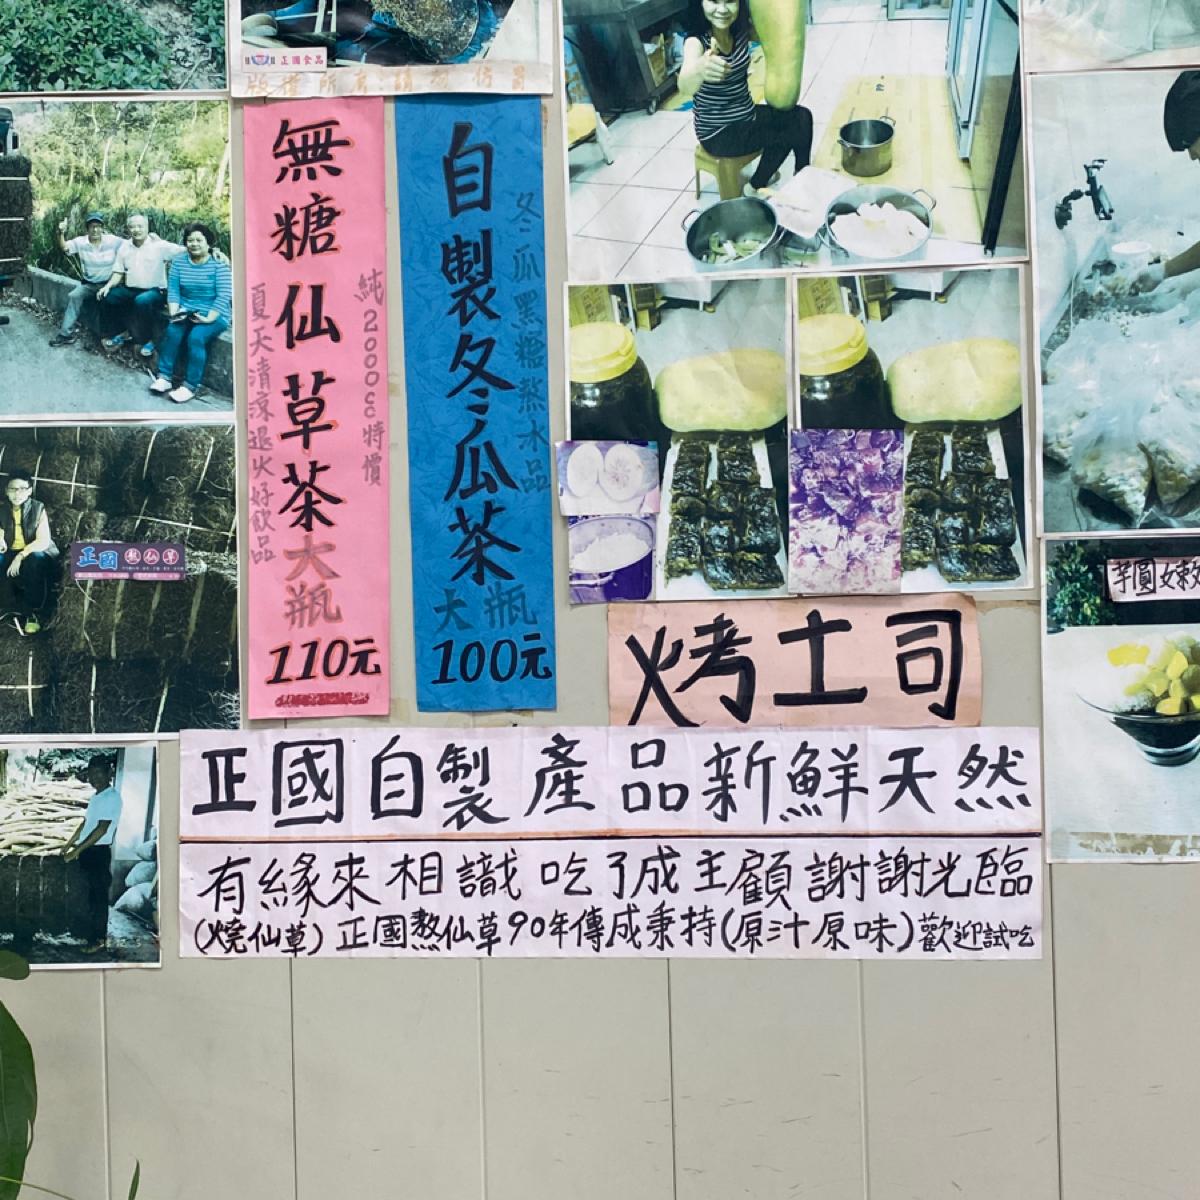 正國食品
版權所有請勿仿冒
無糖仙草茶大瓶
110元
純2000cc特價
夏天清涼退火好飲品
自製冬瓜茶大瓶
100元
冬瓜黑糖熬水品
正國熬仙草
芋圓女敕
烤土司
正國自製產品新鮮天然
有緣來相識吃了成主顧謝謝光臨
(燒仙草)正國熬仙草90年傳成秉持(原汁原味)歡迎試吃